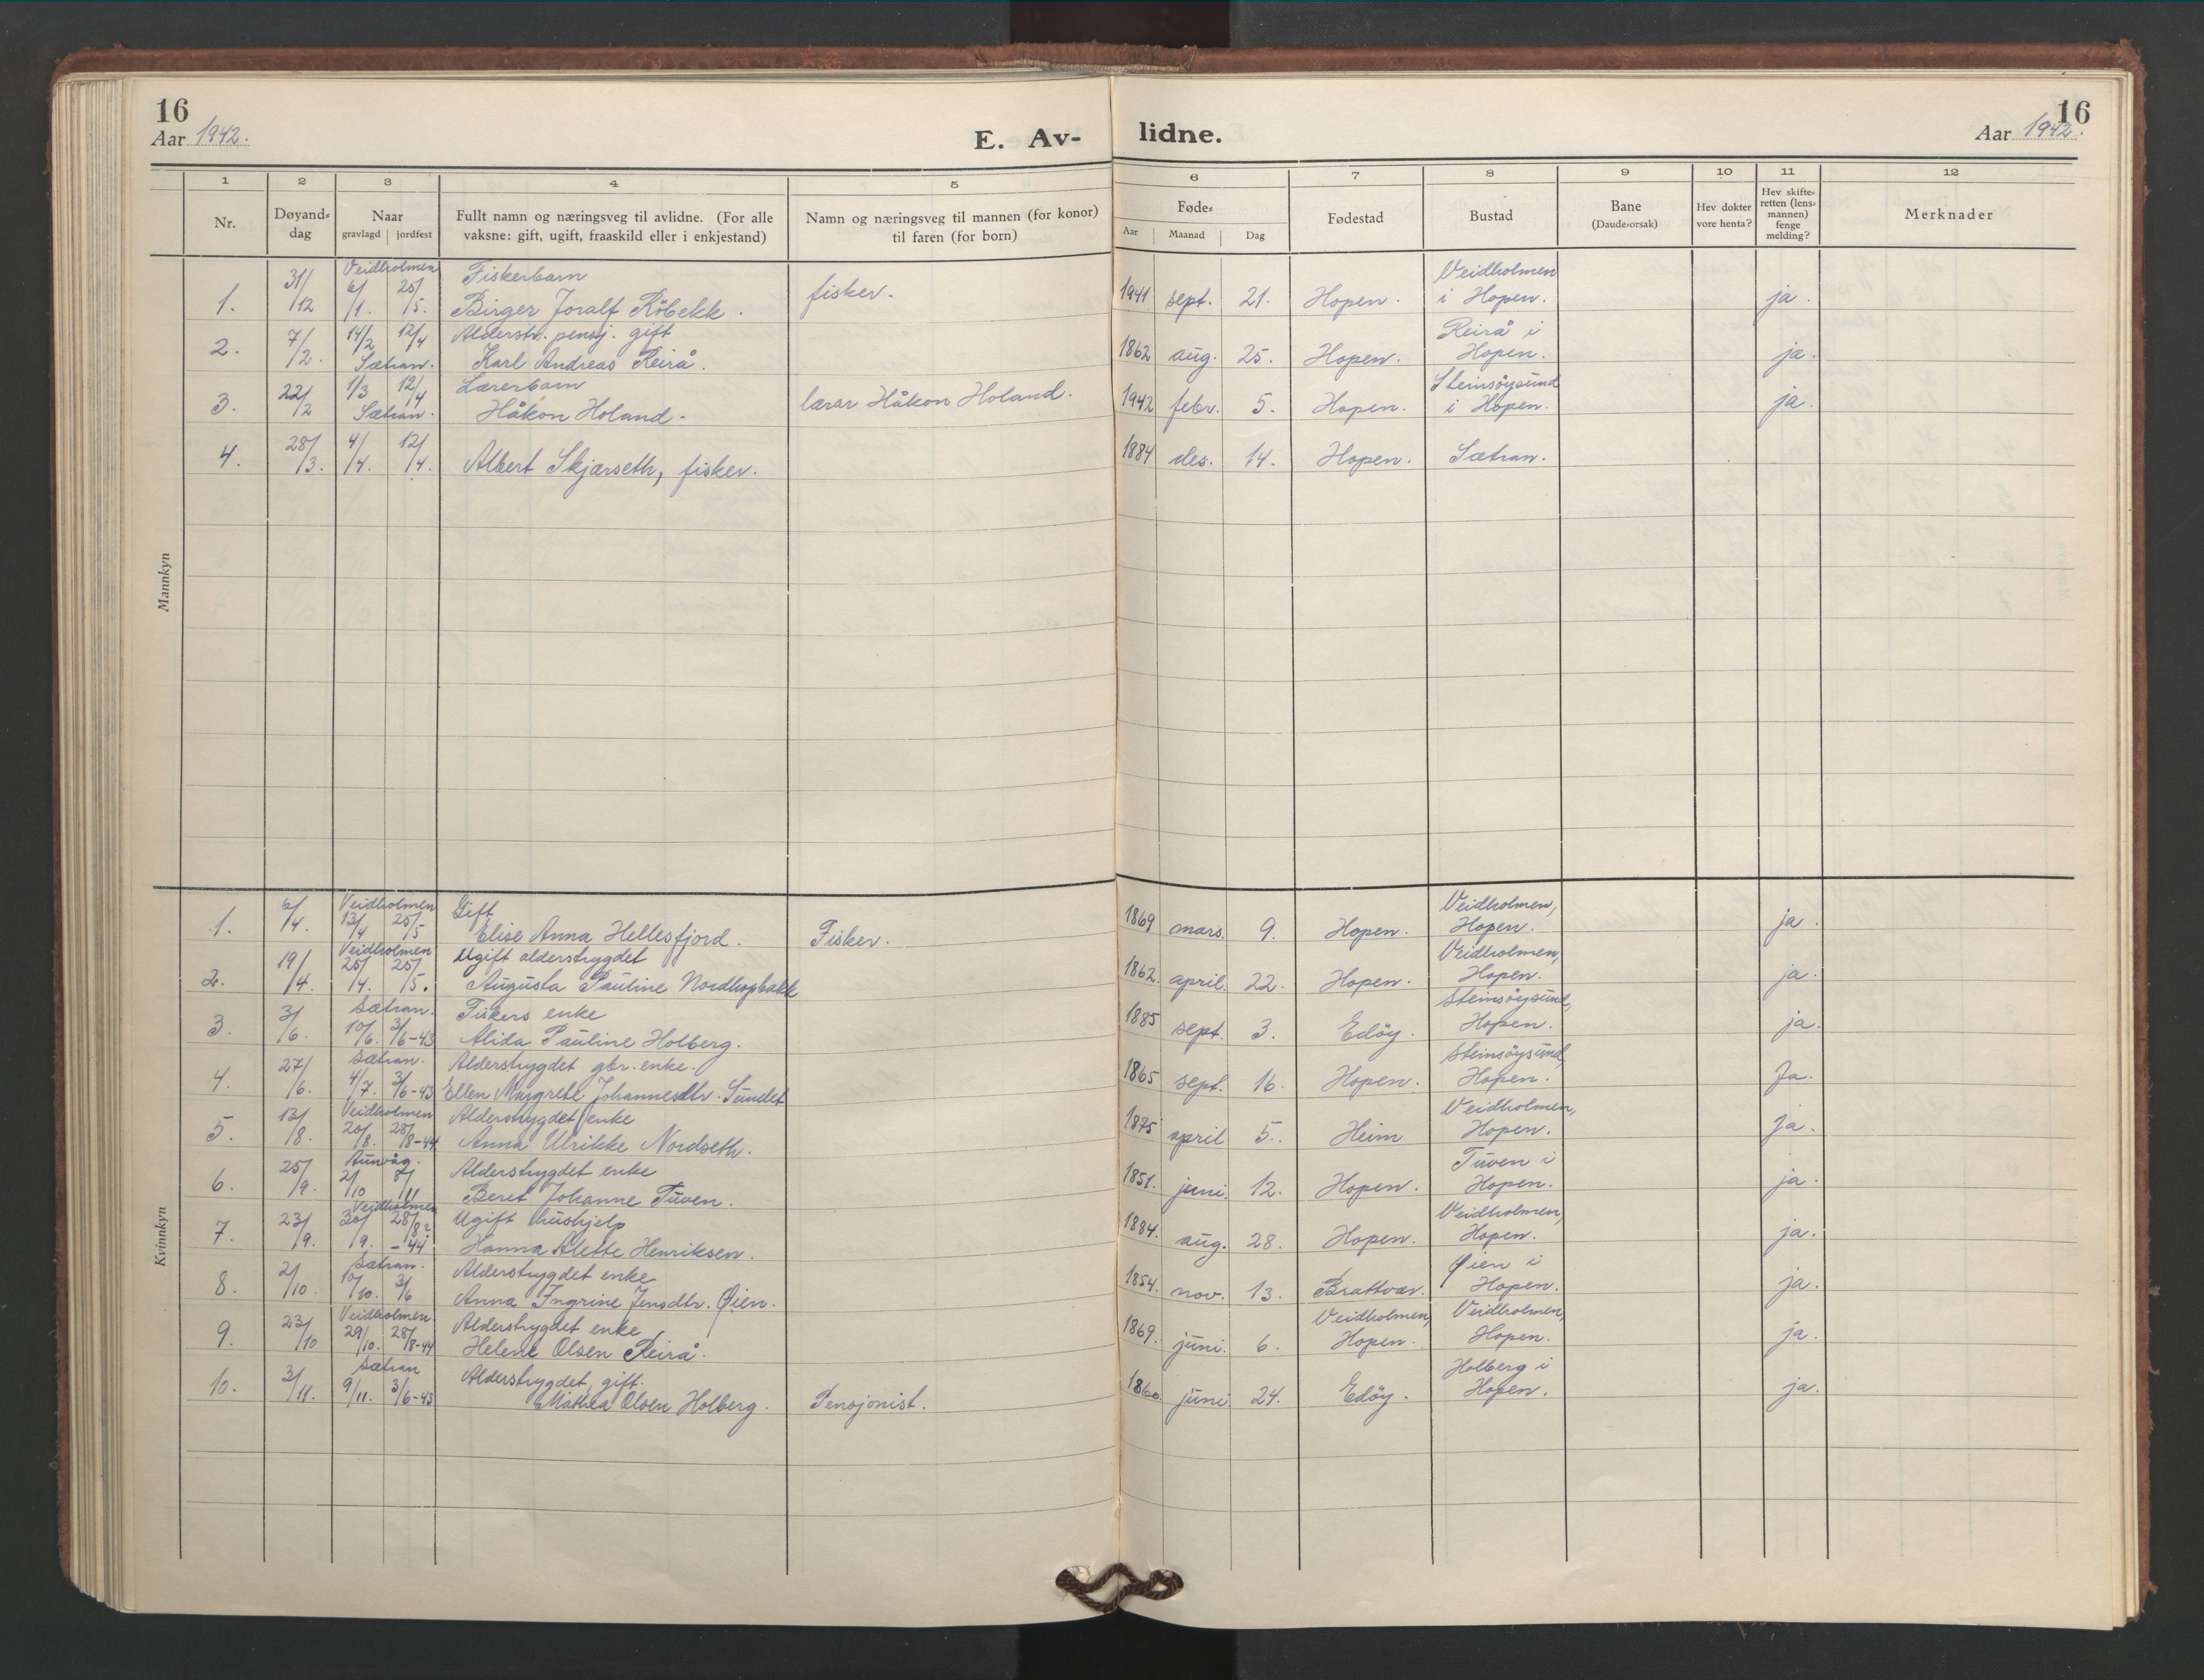 16
Aar 1942.
E. Av-
lidne.
16
Aar 1942.
1 2 3 4 5 6 7 8 9 10 11 12
Nr. | Døyand-dag | Naar gravlagd | jordfest | Fullt namn og næringsveg til avlidne. (For alle vaksne: gift, ugift, fraaskild eller i enkjestand) | Namn og næringsveg til mannen (for konor) til faren (for born) | Føde- Aar | Maanad | Dag | Fødestad | Bustad | Bane (Daude-orsak) | Hev dokter vore henta? | Hev skifte-retten (lens-mannen) fenge melding? | Merknader
Mannkyn
Veidholmen Fiskerbarn Veidholmen
1. 31/12 6/1. 25/5. Birger Joralf Röbekk. fisker. 1941 sept. 21. Hopen. i Hopen. ja.
14/2 12/4 Alderstr. pensj. gift Reirå i
2. 7/2. Sætran. Karl Andreas Reirå. 1862 aug. 25. Hopen. Hopen. ja.
1/3 12/4 Lærerbarn Steinsöysund
3. 22/2 Sætran. Håkon Holand. lærar Håkon Holand. 1942 febr. 5. Hopen. i Hopen. ja.
4. 28/3. 4/4. 12/4. Albert Skjærseth, fisker. 1884 des. 14. Hopen. Sætran.
Kvinnkyn
Veidholmen Gift Veidholmen,
1. 6/4. 13/4 25/5 Elise Anna Hellesfjord. Fisker. 1869 mars. 9. Hopen. Hopen. ja.
Veidholmen Ugift alderstrygdet Veidholmen,
2. 19/4. 25/4. 25/5. Augusta Pauline Nordhopbakk 1862. april. 22. Hopen. Hopen. ja.
Sætran. Fiskers enke Steinsöysund,
3. 3/6. 10/6. 3/6-43 Alida Pauline Holberg. 1885 sept. 3. Edöy. Hopen. ja.
Sætran. Alderstrygdet gbr. enke. Steinsöysund,
4. 27/6. 4/7. 3/6-43 Ellen Margrete Johannesdtr. Sundet 1865 sept. 16. Hopen. Hopen. Ja.
Veidholmen Alderstrygdet enke Veidholmen,
5. 13/8. 20/8. 28/8-44 Anna Ulrikke Nordseth. 1875 april 5. Heim Hopen. Ja.
Aunvåg. Alderstrygdet enke Tuven i
6. 25/9. 2/10 8/11 Beret Johanne Tuven. 1851. juni. 12. Hopen. Hopen. ja.
Veidholmen Ugift hushjelp Veidholmen,
7. 23/9. 30/9. 28/8-44 Hanna Alette Henriksen. 1884. aug. 28. Hopen. Hopen. ja.
Sætran. Alderstrygdet enke Øien i
8. 2/10. 10/10. 3/6 Anna Ingrine Jensdtr. Øien. 1854. nov. 13. Brattvær. Hopen. ja.
Veidholmen Alderstrygdet enke Veidholmen, Veidholmen,
9. 23/10 29/10. 28/8-44 Helene Olsen Reirå. 1869. juni. 6. Hopen. Hopen. ja.
Sætran Alderstrygdet, gift. Holberg i
10. 3/11. 9/11. 3/6-43 Mathea Olsen Holberg. Pensjonist. 1860. juni 24. Edöy. Hopen. ja.